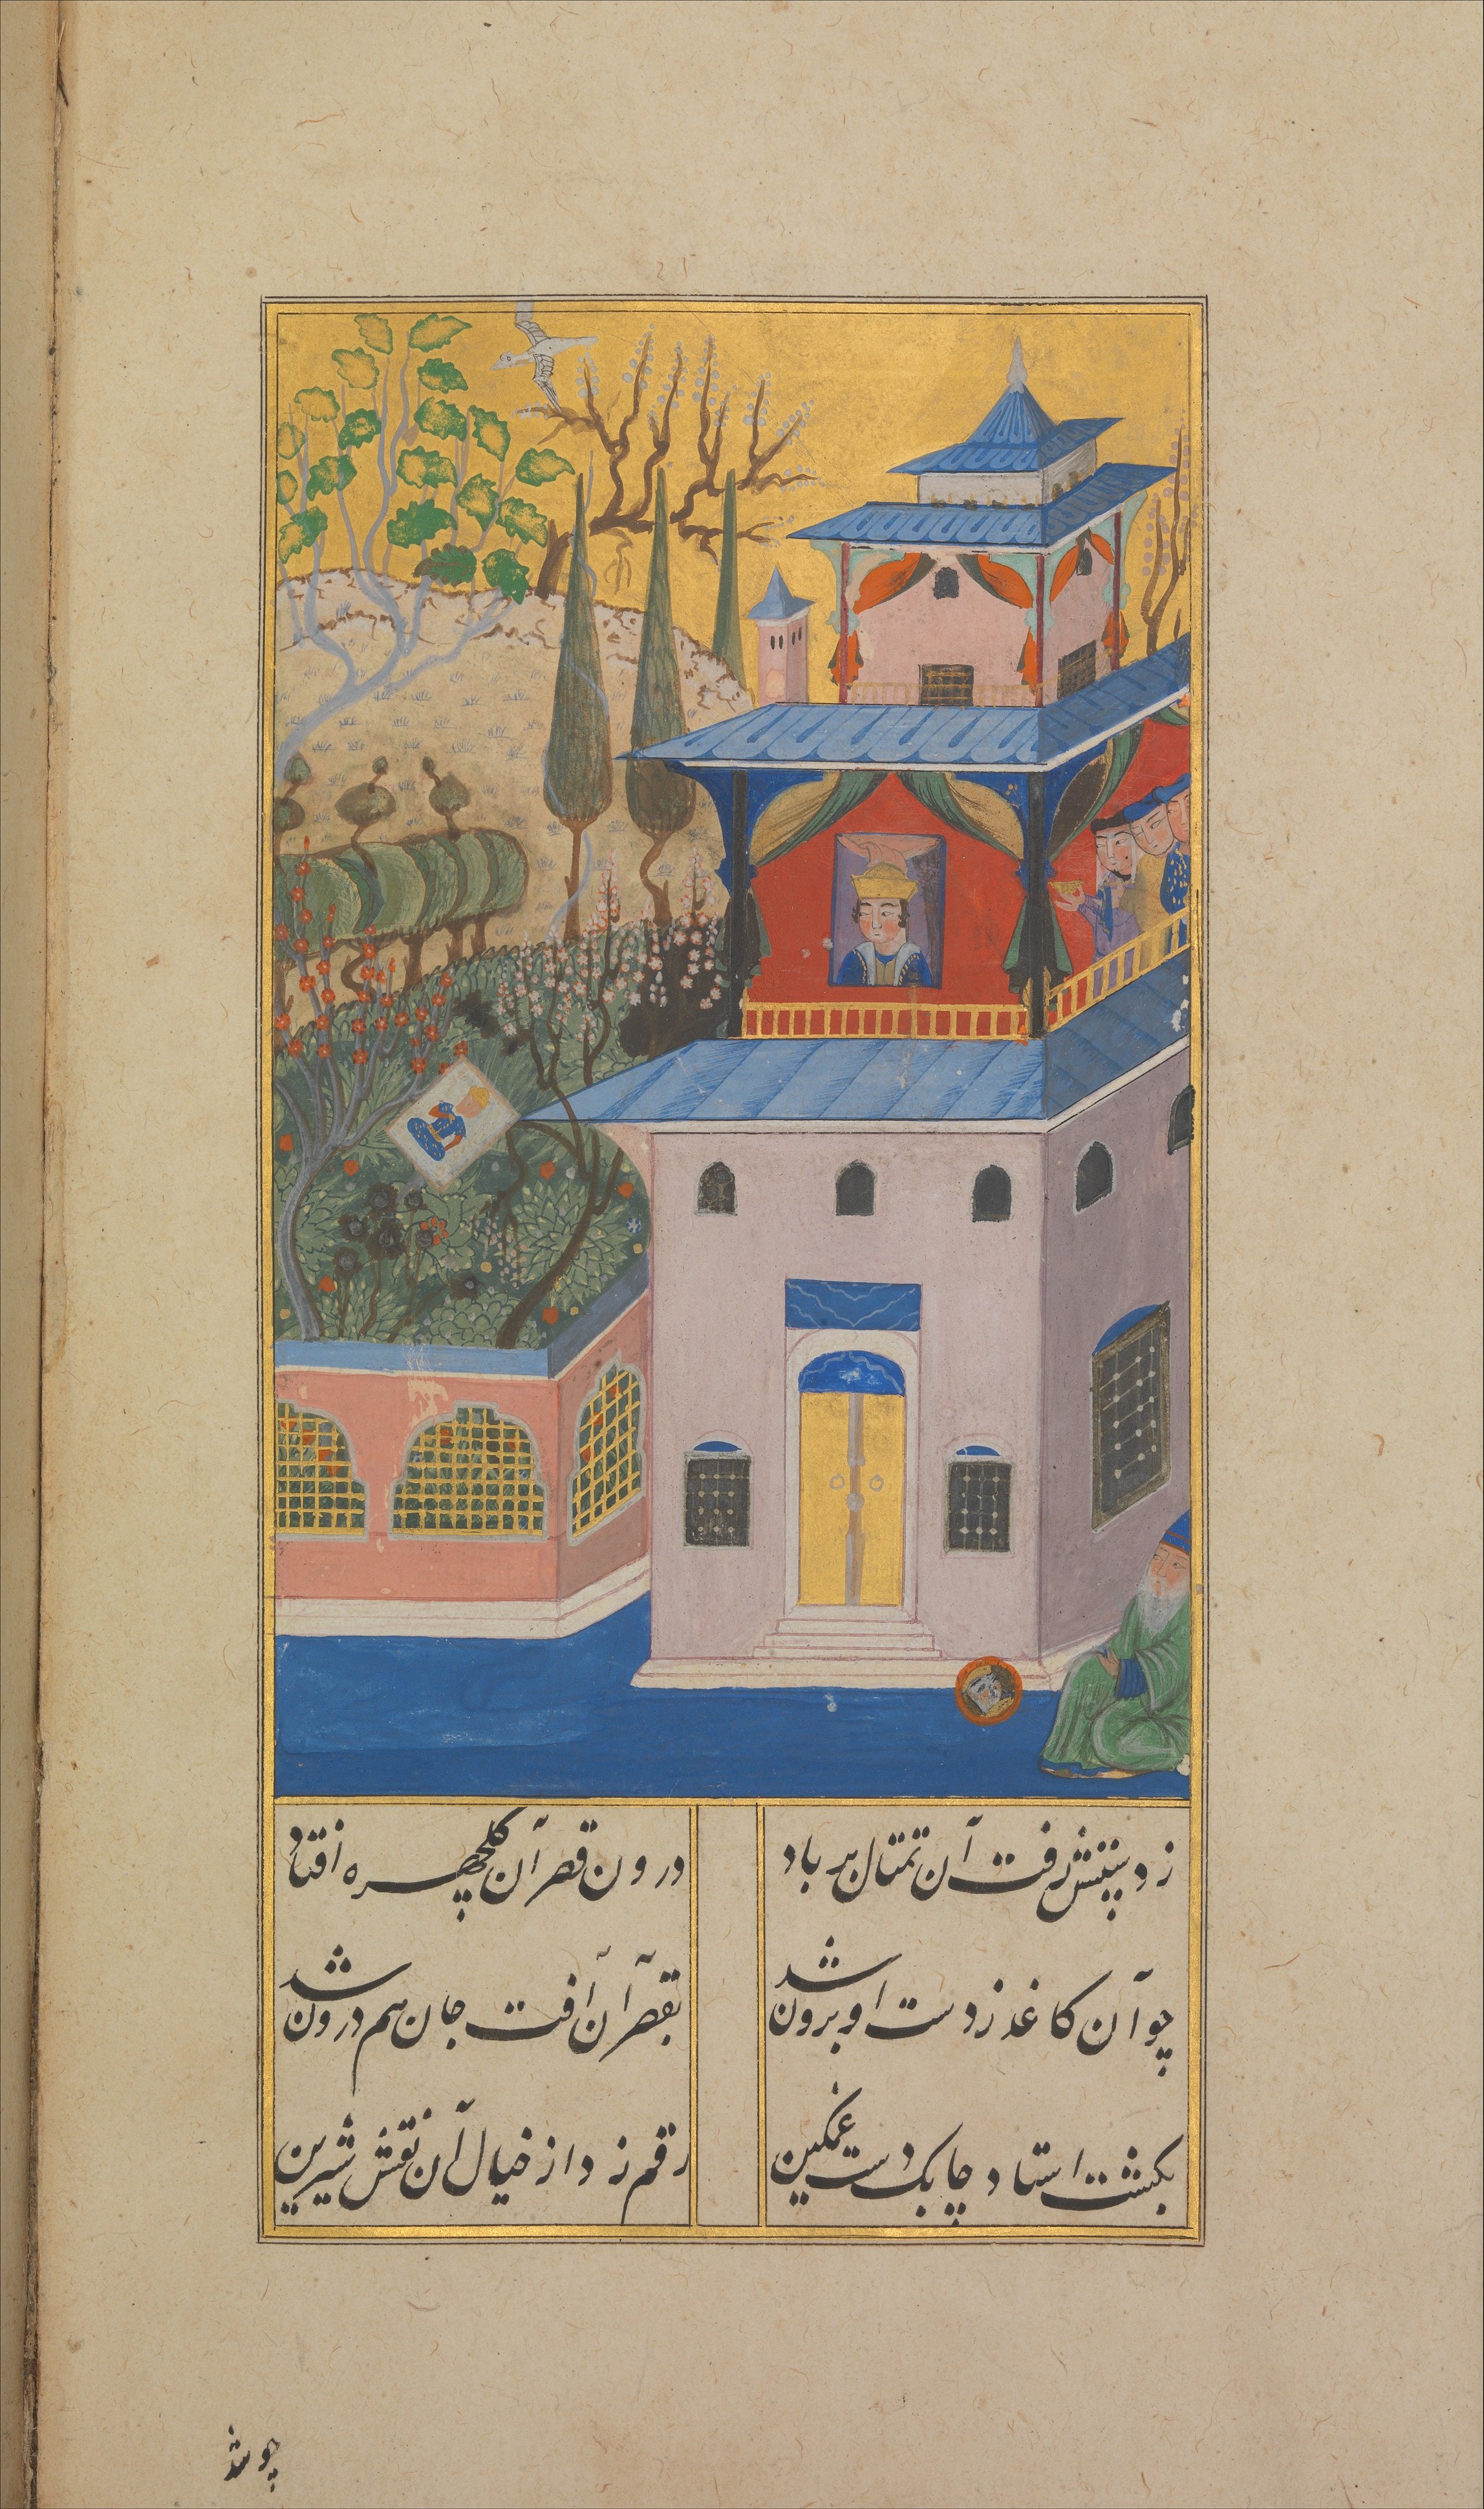 ز دستش رفت آن تمثال بر باد
درون قصر آن گلچهره افتاد
چو آن کاغذ ز دست او برون شد
بقصر آن آفت جان هم درون شد
بکشت استاد چابک دست غمگین
رقم زد از خیال آن نقش شیرین
چو شد